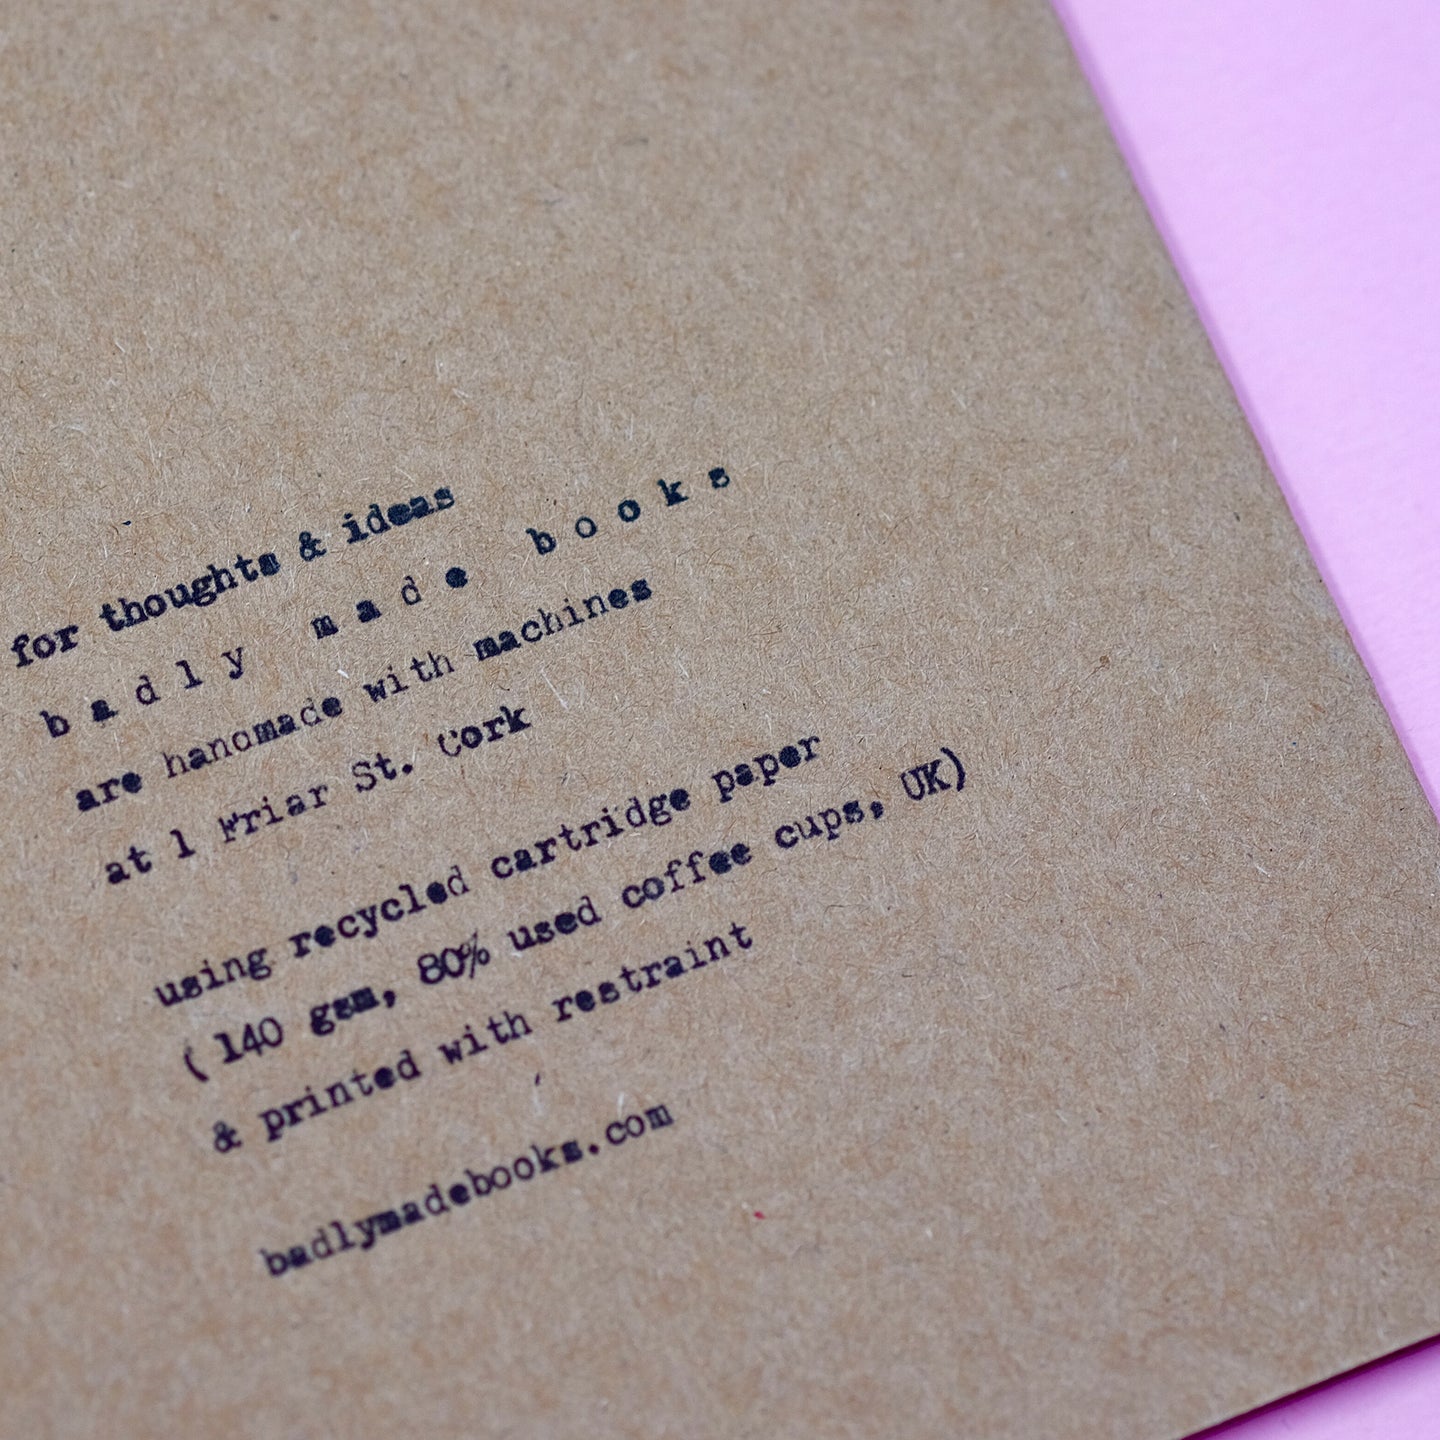 for thoughts & ideas
b a d l y  m a d e  b o o k s
are handmade with machines
at 1 Friar St. Cork
using recycled cartridge paper
(140 gsm, 80% used coffee cups, UK)
& printed with restraint
badlymadebooks.com